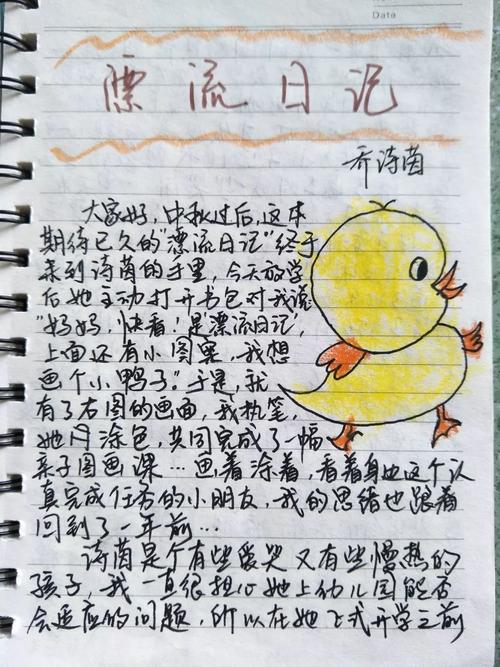 Date
漂流日记
乔诗茵
大家好，中秋过后，这本
期待已久的“漂流日记”终于
来到诗茵的手里，今天放学
后她主动打开书包对我说
“妈妈，快看！是漂流日记，
上面还有小图案，我想
画个小鸭子”。于是，就
有了右图的画面，我执笔，
她涂色，共同完成了一幅
亲子图画课…画着涂着，看着身边这个认
真完成任务的小朋友，我的思绪也跟着
回到了一年前…
诗茵是个有些爱哭又有些慢热的
孩子，我一直很担心她上幼儿园能否
会适应的问题，所以在她正式开学之前